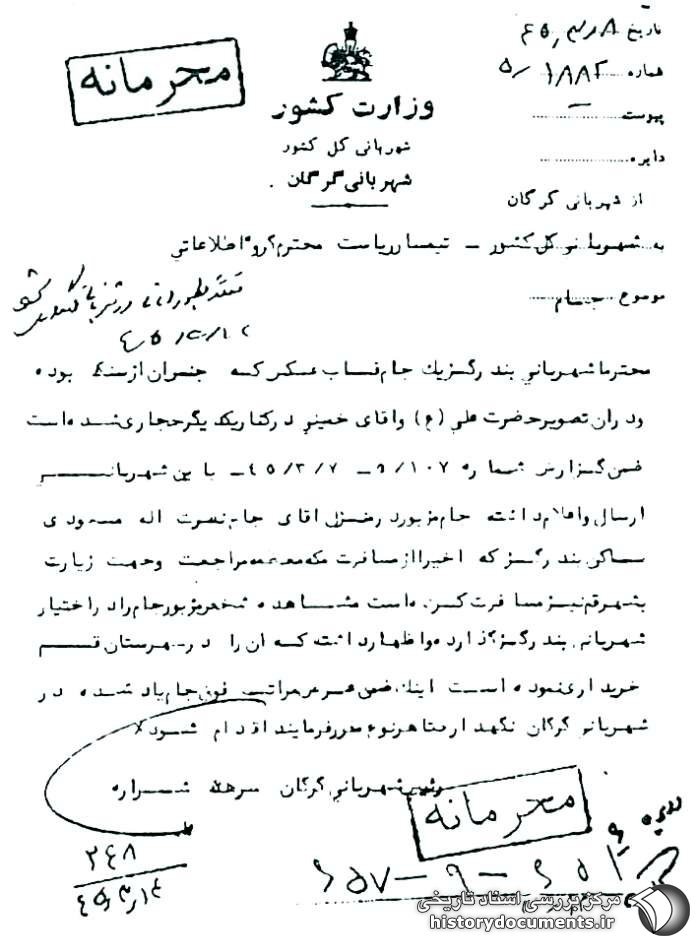 تاریخ ۴۵/۳/۸
شماره ۵/۱۸۸۲
پیوست
دایره
محرمانه
وزارت کشور
شهربانی کل کشور
شهربانی گرگان
از شهربانی گرگان
به شهربانی کل کشور - تیمسار ریاست محترم گروه اطلاعاتی
موضوع جام
محترما شهربانی بندرگز یک جام قاب عکس که جنس ان از سنگ بوده
ودران تصویر حضرت علی (ع) واقای خمینی درکنار یکدیگر حجاری شده است
ضمن گزارش شماره ۵/۱۰۷ - ۴۵/۳/۷ - باین شهربانی
ارسال واعلام داشته جام مزبور در منزل اقای حاج نصرت اله مسعودی
ساکن بندرگز که اخیرا از مسافرت مکه معظمه مراجعت وجهت زیارت
بشهر قم نیز مسافرت کرده است مشاهده شخص مزبور جام را در اختیار
شهربانی بندرگز گذارده و اظهار داشته که ان را در شهرستان قم
خریداری نموده است اینک ضمن عرض مراتب فوق جام یاد شده در
شهربانی گرگان نگهداری تا هر نوع مقرر فرمایند اقدام شود
رئیس شهربانی گرگان سرهنگ شراره
محرمانه
۲۴۸
۴۵/۳/۱۴
مرکز بررسی اسناد تاریخی
historydocuments.ir